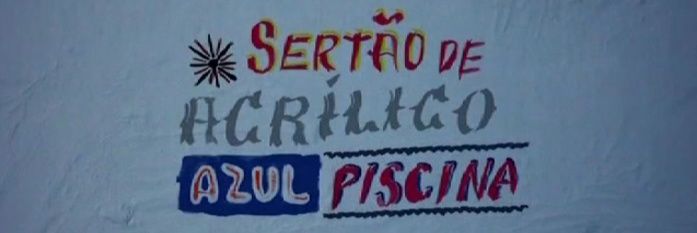 SERTÃO DE
ACRÍLICO
AZUL PISCINA